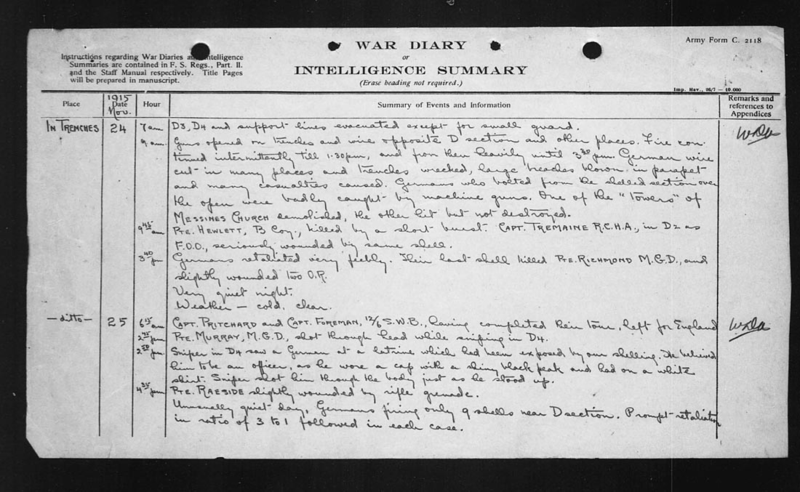 Army Form C. 2118
WAR DIARY
or
INTELLIGENCE SUMMARY
(Erase heading not required.)
Instructions regarding War Diaries and Intelligence
Summaries are contained in F. S. Regs., Part. II.
and the Staff Manual respectively. Title Pages
will be prepared in manuscript.
Place 1915 Date Nov. Hour Summary of Events and Information Remarks and references to Appendices
IN TRENCHES 24 7 am D3, D4 and support lines evacuated except for small guard.
9 am Guns opened on trenches and wire opposite D section and other places. Fire con-
tinued intermittently till 1-30 pm, and from then heavily until 3 pm. German wire
cut in many places and trenches wrecked, large breaches blown in parapet
and many casualties caused. Germans who bolted from the shelled section over
the open were badly caught by machine guns. One of the "towers" of
MESSINES CHURCH demolished, the other hit but not destroyed.
9 am Pte. HEWLETT, B Coy., killed by a short burst. CAPT. TREMAINE R.C.H.A., in D2 as
F.O.O., seriously wounded by same shell.
3 pm Germans retaliated very feebly. Their last shell killed Pte. RICHMOND M.G.D., and
slightly wounded two O.R.
Very quiet night.
Weather — cold. clear.
— ditto — 25 6 am CAPT. PRITCHARD and CAPT. FOREMAN, 12/6 S.W.B., having completed their tour, left for England
2 pm Pte. MURRAY, M.G.D., shot through head while sniping in D4.
2 pm Sniper in D4 saw a German at a latrine which had been exposed by our shelling. He believed
him to be an officer, as he wore a cap with a shiny black peak and had on a white
shirt. Sniper shot him through the body just as he stood up.
4 pm Pte. RAESIDE slightly wounded by rifle grenade.
Unusually quiet day, Germans firing only 9 shells near D section. Prompt retaliation
in ratio of 3 to 1 followed in each case.